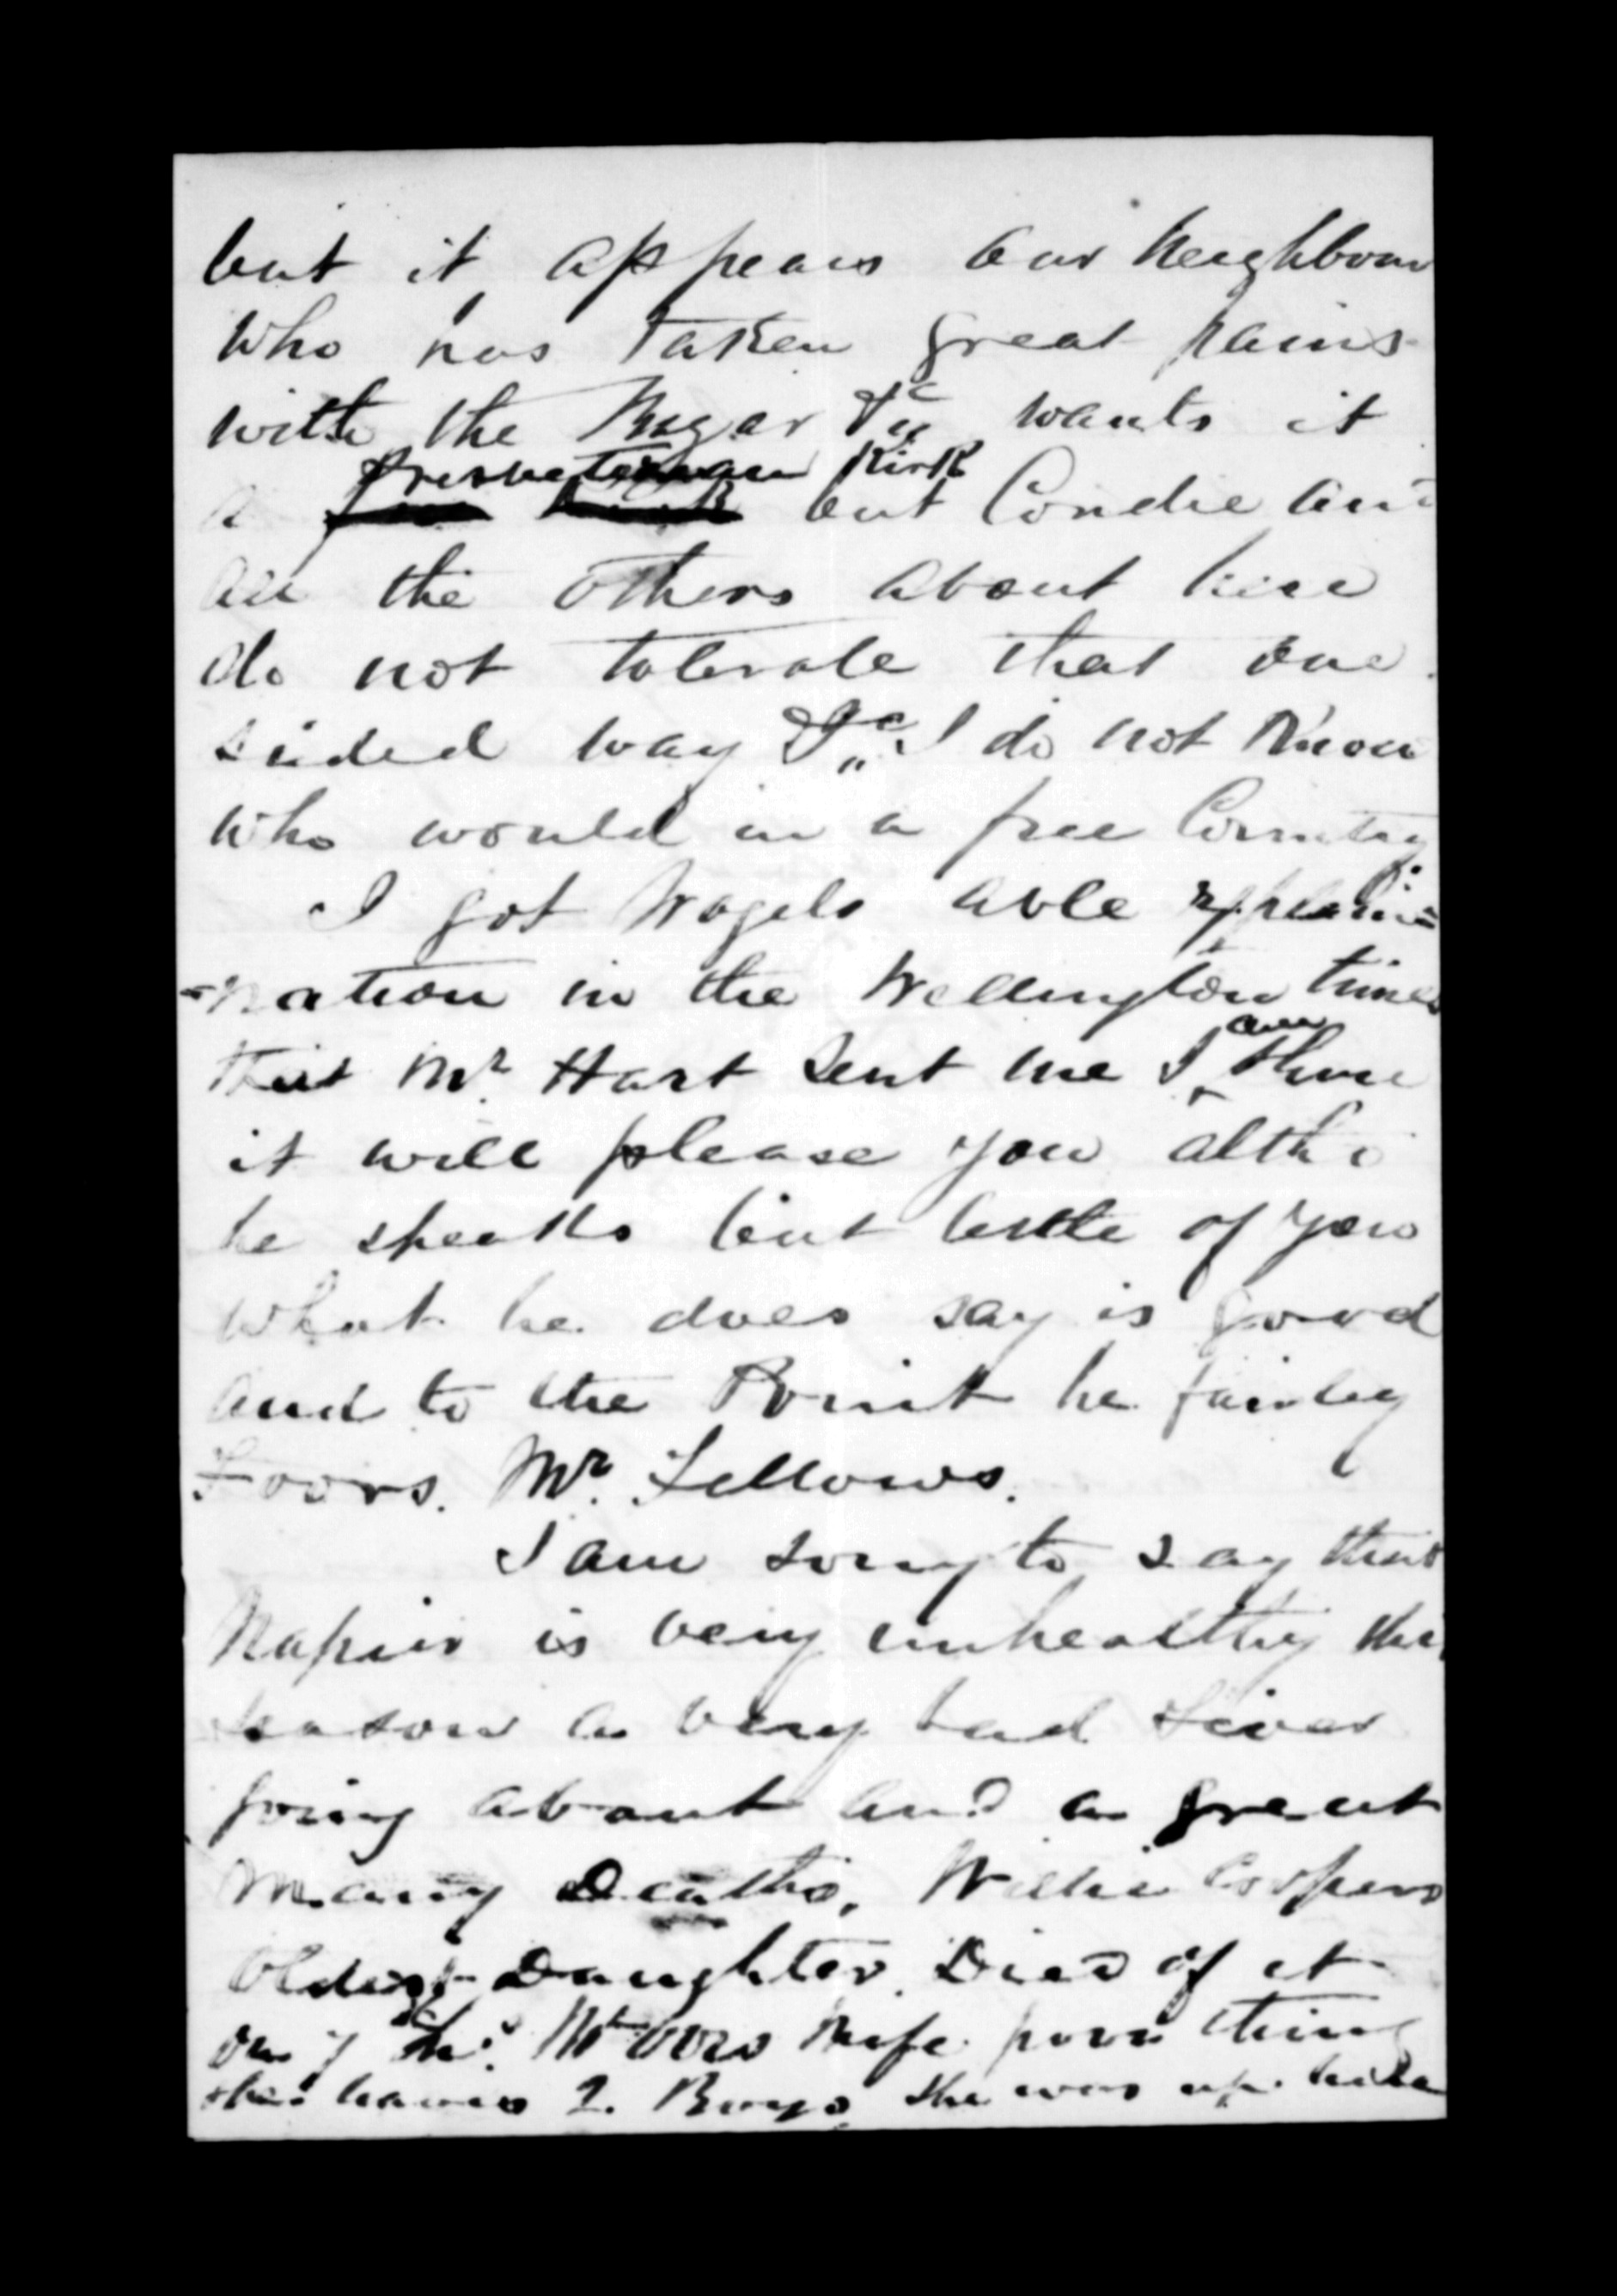 but it appears our Neighbour
who has taken great pains
with the &c wants it
Presbeterian Kirk
a but Condie and
all the others about here
do not tolerate that one
sided way &c I do not Know
who would in a free Country
I got Vogels able explain=
=nation in the Wellington times
that Mr. Hart sent me I am shure
it will please you altho
he speaks but little of you
what he does say is good
and to the Point he fairley
Floors. Mr. Fellows.
I am sorry to say that
Napier is very unhealthy this
season a very bad Fever
going about and a great
many Deaths, Willie Coopers
Oldest Daughter. Died of it
Wife poor thing
she leaves 2. Boys. she was up here